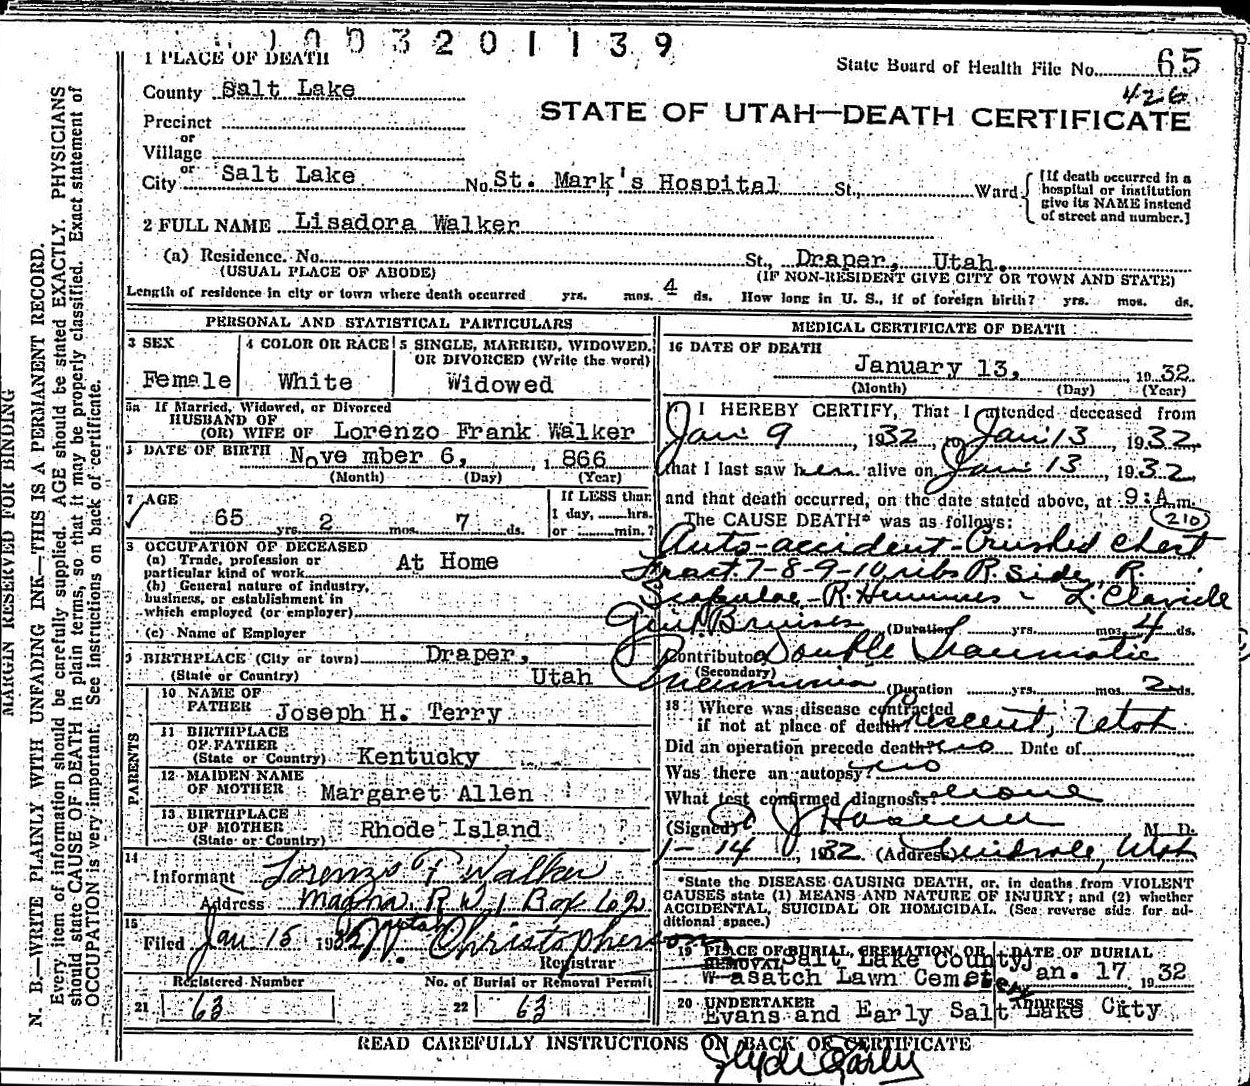 1003201139
1 PLACE OF DEATH
State Board of Health File No. 65
426
County Salt Lake
STATE OF UTAH—DEATH CERTIFICATE
Precinct
or
Village
or
City Salt Lake No. St. Mark's Hospital St., Ward
[If death occurred in a hospital or institution give its NAME instead of street and number.]
2 FULL NAME Lisadora Walker
(a) Residence. No. St., Draper, Utah.
(USUAL PLACE OF ABODE) (IF NON-RESIDENT GIVE CITY OR TOWN AND STATE)
Length of residence in city or town where death occurred yrs. mos. 4 ds. How long in U. S., if of foreign birth? yrs. mos. ds.
PERSONAL AND STATISTICAL PARTICULARS
3 SEX 4 COLOR OR RACE 5 SINGLE, MARRIED, WIDOWED, OR DIVORCED (Write the word)
Female White Widowed
5a If Married, Widowed, or Divorced
HUSBAND OF
(OR) WIFE OF Lorenzo Frank Walker
DATE OF BIRTH November 6, 1866
(Month) (Day) (Year)
7 AGE
65 yrs. 2 mos. 7 ds.
If LESS than
1 day, hrs.
or min.?
OCCUPATION OF DECEASED
(a) Trade, profession or
particular kind of work At Home
(b) General nature of industry,
business, or establishment in
which employed (or employer)
(c) Name of Employer
BIRTHPLACE (City or town) Draper,
(State or Country) Utah
PARENTS
10 NAME OF
FATHER Joseph H. Terry
11 BIRTHPLACE
OF FATHER
(State or Country) Kentucky
12 MAIDEN NAME
OF MOTHER Margaret Allen
13 BIRTHPLACE
OF MOTHER
(State or Country) Rhode Island
14
Informant Lorenzo F Walker
Address Magna. R.W. 1 Box 62
15
Filed Jan 15 1932 Christopherson
Registrar
Registered Number No. of Burial or Removal Permit
21 63 22 63
MEDICAL CERTIFICATE OF DEATH
16 DATE OF DEATH
January 13, 1932
(Month) (Day) (Year)
I HEREBY CERTIFY, That I attended deceased from
Jan 9, 1932, to Jan 13, 1932,
that I last saw her alive on Jan 13, 1932,
and that death occurred, on the date stated above, at 9:A m.
The CAUSE DEATH* was as follows: 210
Auto-accident-Crushed Chest
Fract. 7-8-9-10 ribs R. Side, R.
Scapulae - R. Humerus - L. Clavicle
Genl Bruises (Duration yrs. mos. 4 ds.
Contributory Double Traumatic
(Secondary)
Pneumonia (Duration yrs. mos. 2 ds.
18 Where was disease contracted
if not at place of death? Crescent, Utah
Did an operation precede death? no Date of
Was there an autopsy? no
What test confirmed diagnosis? none
(Signed) M. D.
1-14, 1932 (Address) Midvale, Utah
*State the DISEASE CAUSING DEATH, or, in deaths from VIOLENT
CAUSES state (1) MEANS AND NATURE OF INJURY; and (2) whether
ACCIDENTAL, SUICIDAL OR HOMICIDAL. (See reverse side for ad-
ditional space.)
19 PLACE OF BURIAL, CREMATION, OR REMOVAL Salt Lake County, DATE OF BURIAL
Wasatch Lawn Cemetery Jan. 17, 1932
20 UNDERTAKER ADDRESS
Evans and Early Salt Lake City
READ CAREFULLY INSTRUCTIONS ON BACK OF CERTIFICATE
Clyde Early
MARGIN RESERVED FOR BINDING
N. B.—WRITE PLAINLY WITH UNFADING INK—THIS IS A PERMANENT RECORD.
Every item of information should be carefully supplied. AGE should be stated EXACTLY. PHYSICIANS
should state CAUSE OF DEATH in plain terms, so that it may be properly classified. Exact statement of
OCCUPATION is very important. See Instructions on back of certificate.